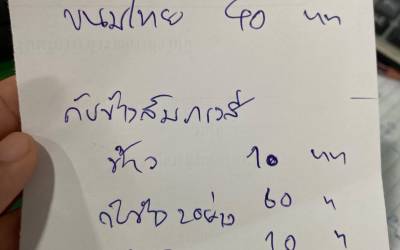 ขนมไทย 40 บาท
กับข้าวสัมภเวสี
ข้าว 10 บาท
กับข้าว 2 อย่าง 60 บ
10 บ